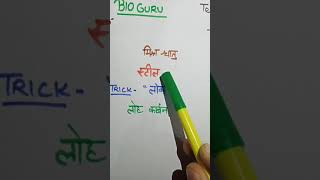 BIO GURU
मिश्र-धातु
स्टील
TRICK- "लोक
लोह कार्बन